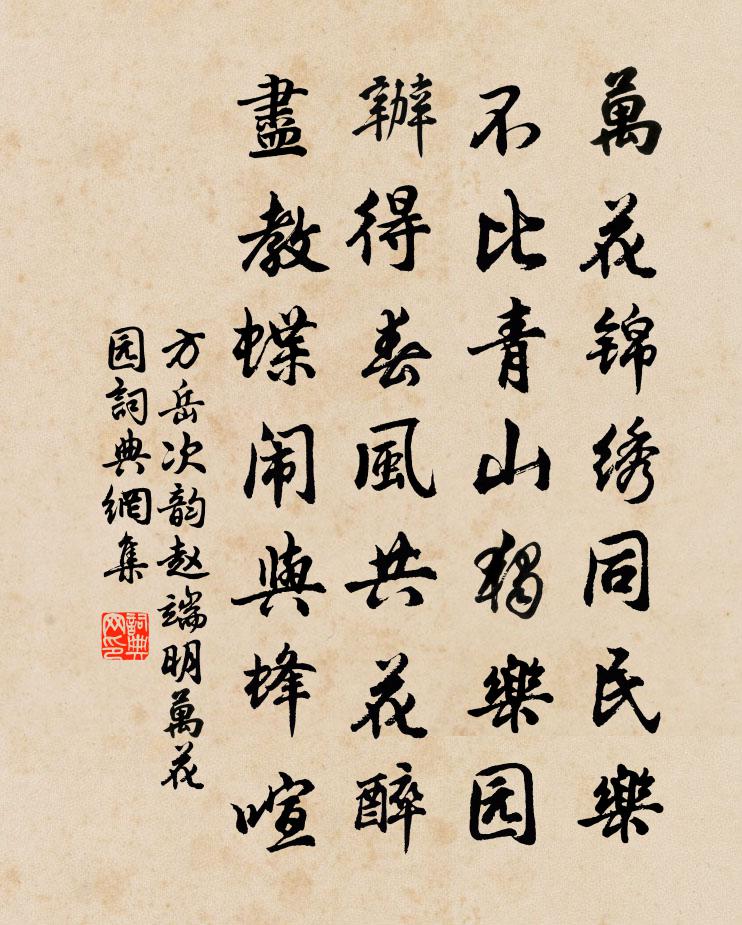 萬花锦绣同民樂
不比青山獨樂园
辦得春風共花醉
盡教蝶闹與蜂喧
方岳次韵赵端明萬花
园詞典網集
詞典
网印